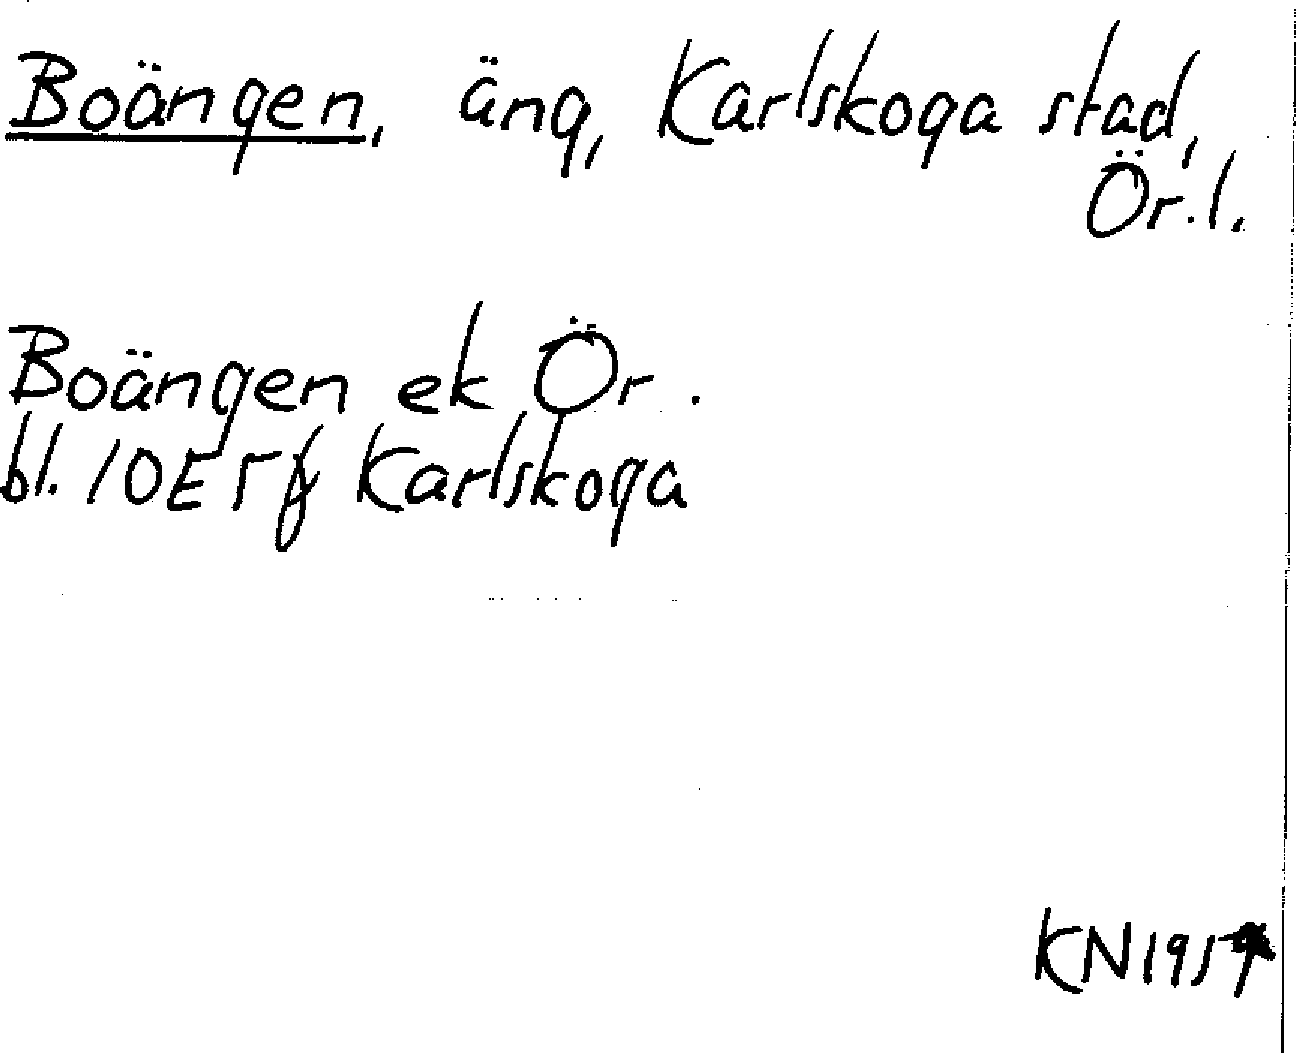 Boängen, äng, Karlskoga stad,
Ör.l.
Boängen ek Ör.
bl. 10E5f Karlskoga